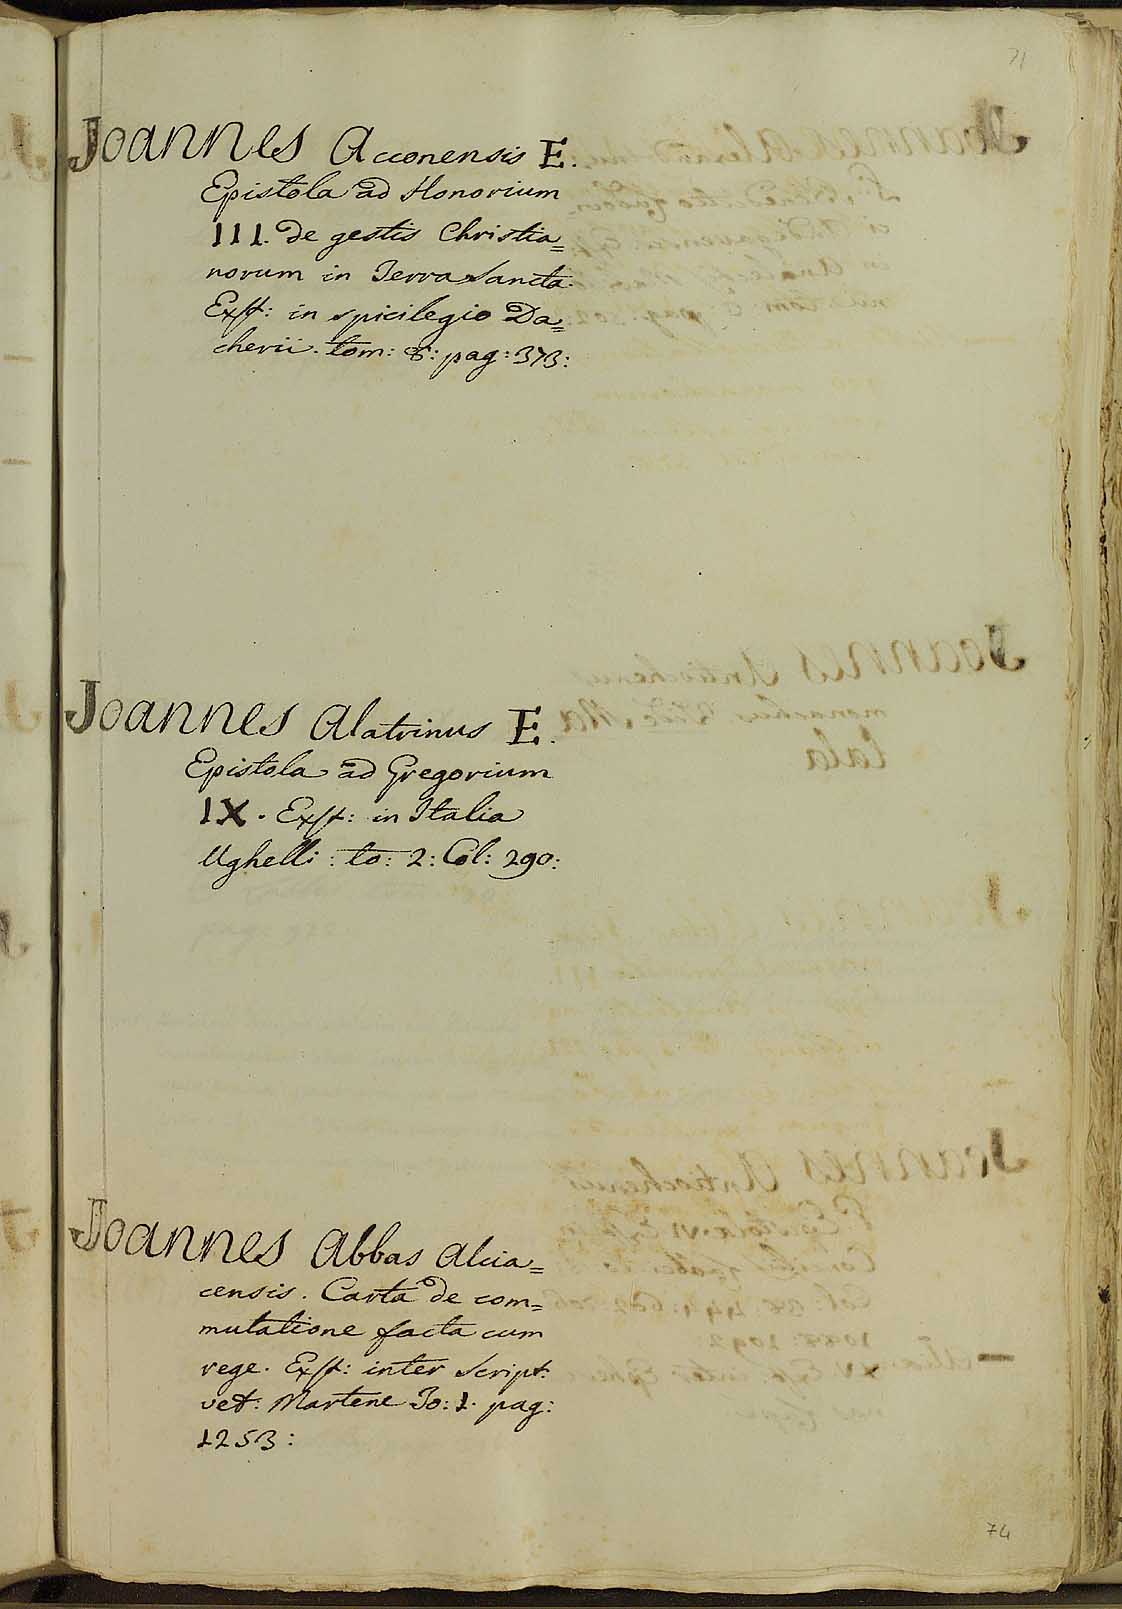 71
Joannes Acconensis E.
Epistola ad Honorium
III. de gestis Christia=
norum in Terra Sancta.
Exst: in spicilegio Da=
cherii. tom: 8: pag: 373:
Joannes Alatrinus E.
Epistola ad Gregorium
IX. Exst: in Italia
Ughelli: to: 2: Col: 290:
Joannes Abbas Alcia=
censis. Carta de com=
mutatione facta cum
rege. Exst: inter Script:
vet: Martene To: 1. pag:
1253:
74